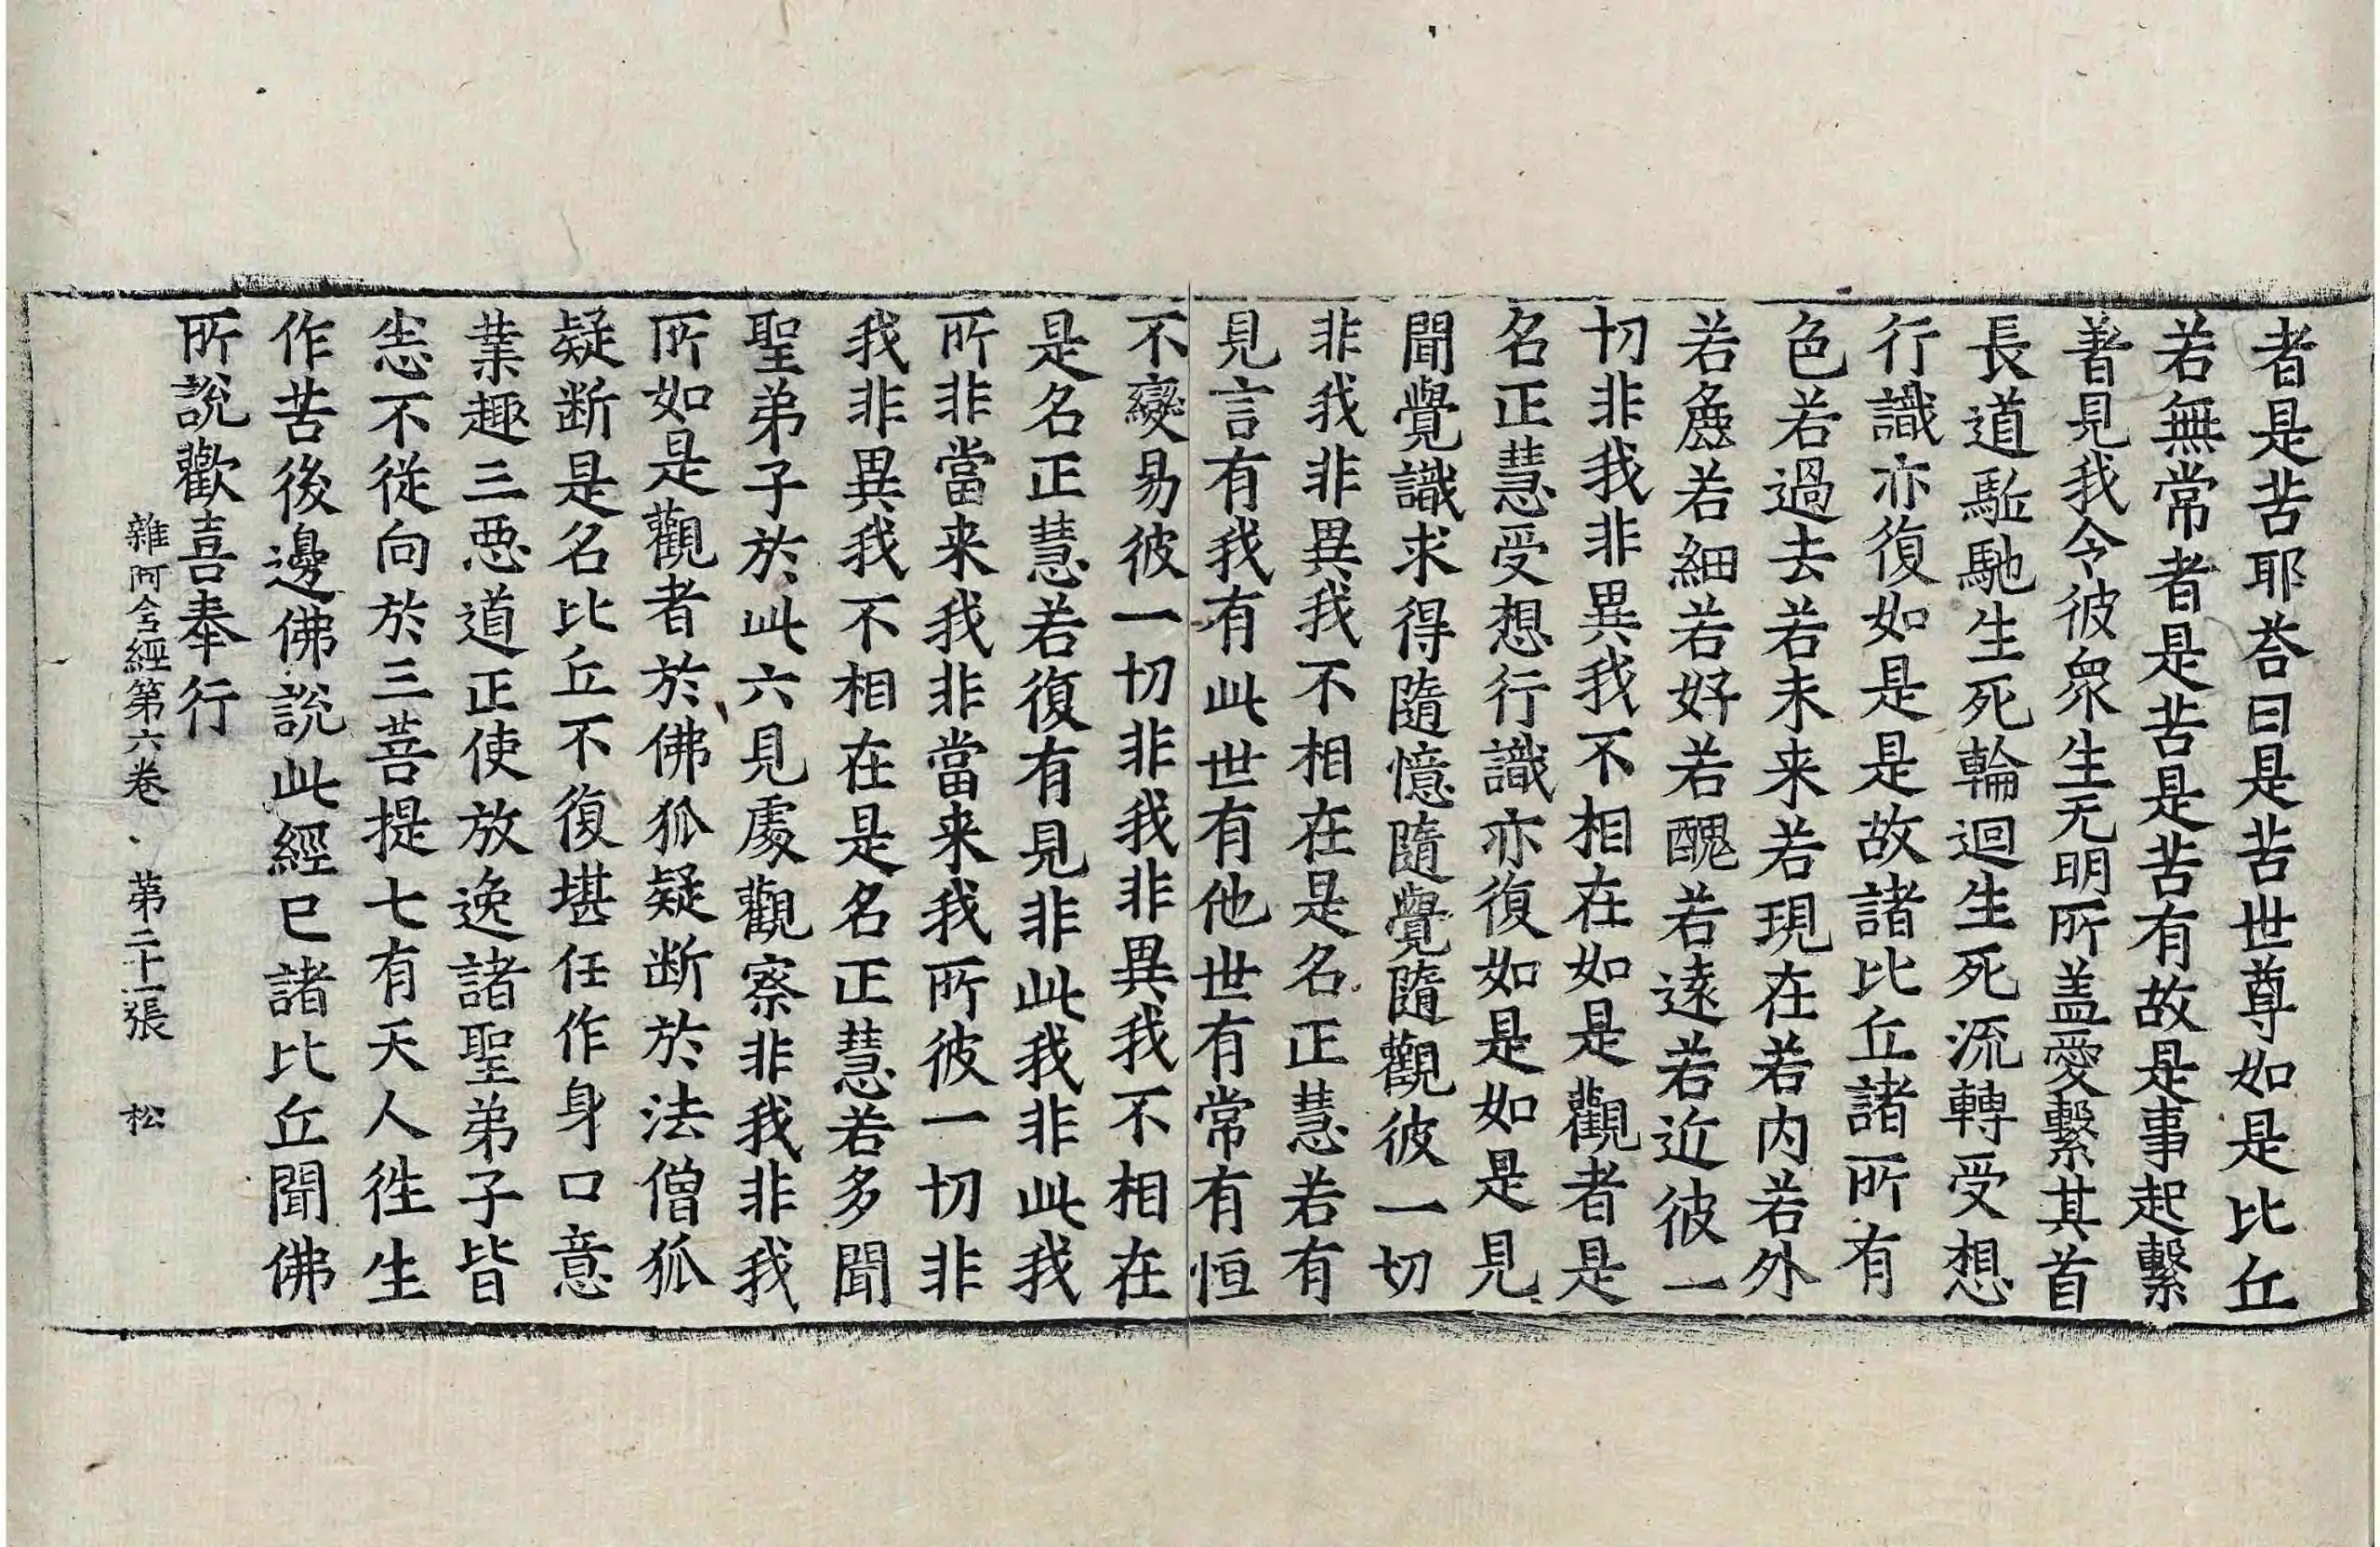 者是苦耶荅曰是苦世尊如是比丘
若無常者是苦是苦有故是事起繫
著見我令彼衆生无明所盖愛繫其首
長道駈馳生死輪迴生死流轉受想
行識亦復如是是故諸比丘諸所有
色若過去若未来若現在若内若外
若麁若細若好若醜若遠若近彼一
切非我非異我不相在如是觀者是
名正慧受想行識亦復如是如是見
聞覺識求得隨憶隨覺隨觀彼一切
非我非異我不相在是名正慧若有
見言有我有此世有他世有常有恒
不變易彼一切非我非異我不相在
是名正慧若復有見非此我非此我
所非當来我非當来我所彼一切非
我非異我不相在是名正慧若多聞
聖弟子於此六見處觀察非我非我
所如是觀者於佛狐疑断於法僧狐
疑断是名比丘不復堪任作身口意
業趣三惡道正使放逸諸聖弟子皆
悉不従向於三菩提七有天人徃生
作苦後邊佛說此經已諸比丘聞佛
所說歡喜奉行
雜阿含經第六卷、第二十一張 松